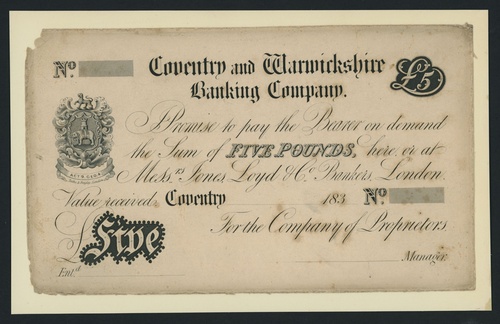 No.
Coventry and Warwickshire
Banking Company.
£5
I Promise to pay the Bearer on demand
the Sum of FIVE POUNDS, here or at
Messrs Jones Loyd & Co. Bankers, London.
Value received, Coventry 183 No.
£Five
For the Company of Proprietors
Entd.
Manager.